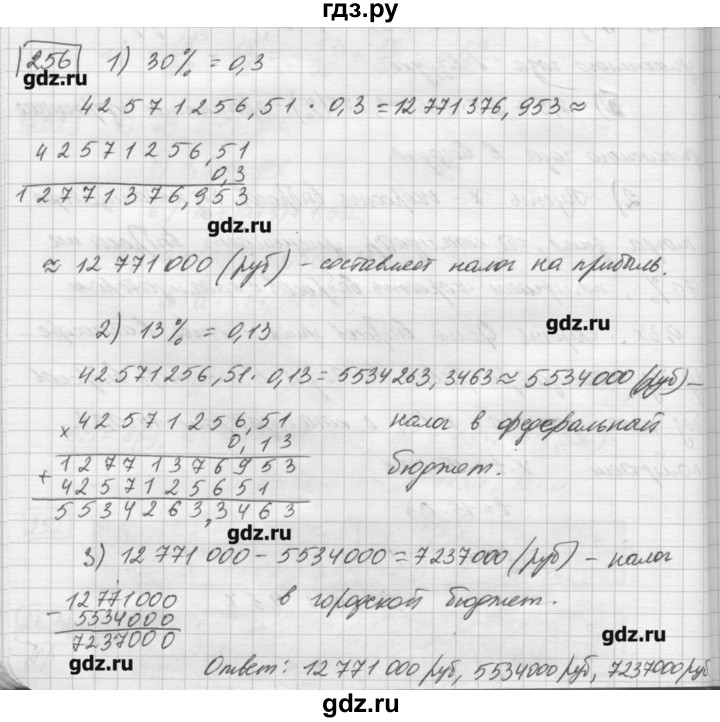 гдз.ру
256 1) 30% = 0,3
gdz.ru
42571256,51 · 0,3 = 12771376,953 ≈
42571256,51
0,3
12771376,953
gdz.ru
≈ 12 771 000 (руб) - составляет налог на прибыль.
gdz.ru
2) 13% = 0,13
42571256,51 · 0,13 = 5534263,3463 ≈ 5534000 (руб) -
× 42571256,51
0,13
налог в федеральный
+ 12771376953
бюджет.
4257125651
5534263,3463
gdz.ru
3) 12 771 000 - 5534000 = 7237000 (руб) - налог
в городской бюджет.
- 12771000
5534000
7237000
gdz.ru
gdz.ru
Ответ: 12 771 000 руб, 5534000 руб, 7237000 руб
gdz.ru